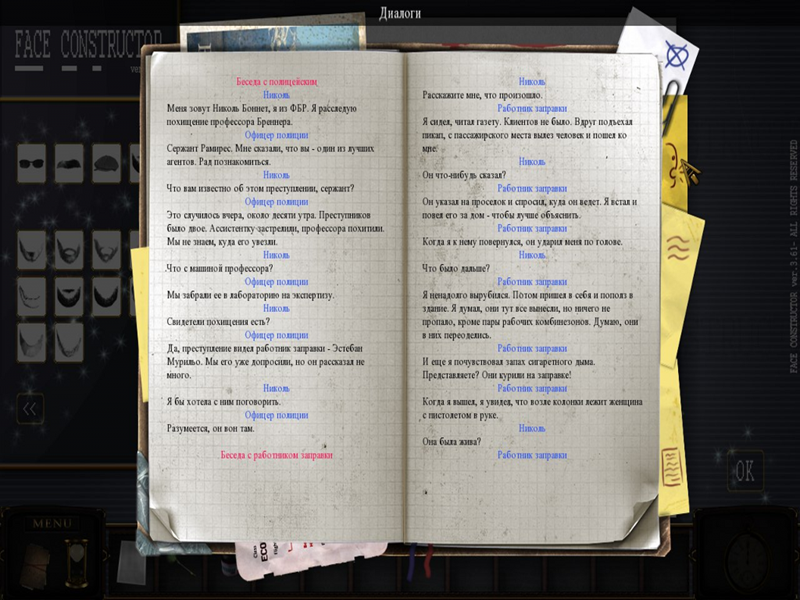 Диалоги
FACE CONSTRUCTOR
ver
Беседа с полицейским
Николь
Меня зовут Николь Боннет, я из ФБР. Я расследую
похищение профессора Бреннера.
Офицер полиции
Сержант Рамирес. Мне сказали, что вы - один из лучших
агентов. Рад познакомиться.
Николь
Что вам известно об этом преступлении, сержант?
Офицер полиции
Это случилось вчера, около десяти утра. Преступников
было двое. Ассистентку застрелили, профессора похитили.
Мы не знаем, куда его увезли.
Николь
Что с машиной профессора?
Офицер полиции
Мы забрали ее в лабораторию на экспертизу.
Николь
Свидетели похищения есть?
Офицер полиции
Да, преступление видел работник заправки - Эстебан
Мурильо. Мы его уже допросили, но он рассказал не
много.
Николь
Я бы хотела с ним поговорить.
Офицер полиции
Разумеется, он вон там.
Беседа с работником заправки
Николь
Расскажите мне, что произошло.
Работник заправки
Я сидел, читал газету. Клиентов не было. Вдруг подъехал
пикап, с пассажирского места вылез человек и пошел ко
мне.
Николь
Он что-нибудь сказал?
Работник заправки
Он указал на проселок и спросил, куда он ведет. Я встал и
повел его за дом - чтобы лучше объяснить.
Работник заправки
Когда я к нему повернулся, он ударил меня по голове.
Николь
Что было дальше?
Работник заправки
Я ненадолго вырубился. Потом пришел в себя и пополз в
здание. Я думал, они тут все вынесли, но ничего не
пропало, кроме пары рабочих комбинезонов. Думаю, они
в них переоделись.
Работник заправки
И еще я почувствовал запах сигаретного дыма.
Представляете? Они курили на заправке!
Работник заправки
Когда я вышел, я увидел, что возле колонки лежит женщина
с пистолетом в руке.
Николь
Она была жива?
Работник заправки
FACE CONSTRUCTOR ver.3.61- ALL RIGHTS RESERVED
OK
MENU
ECO